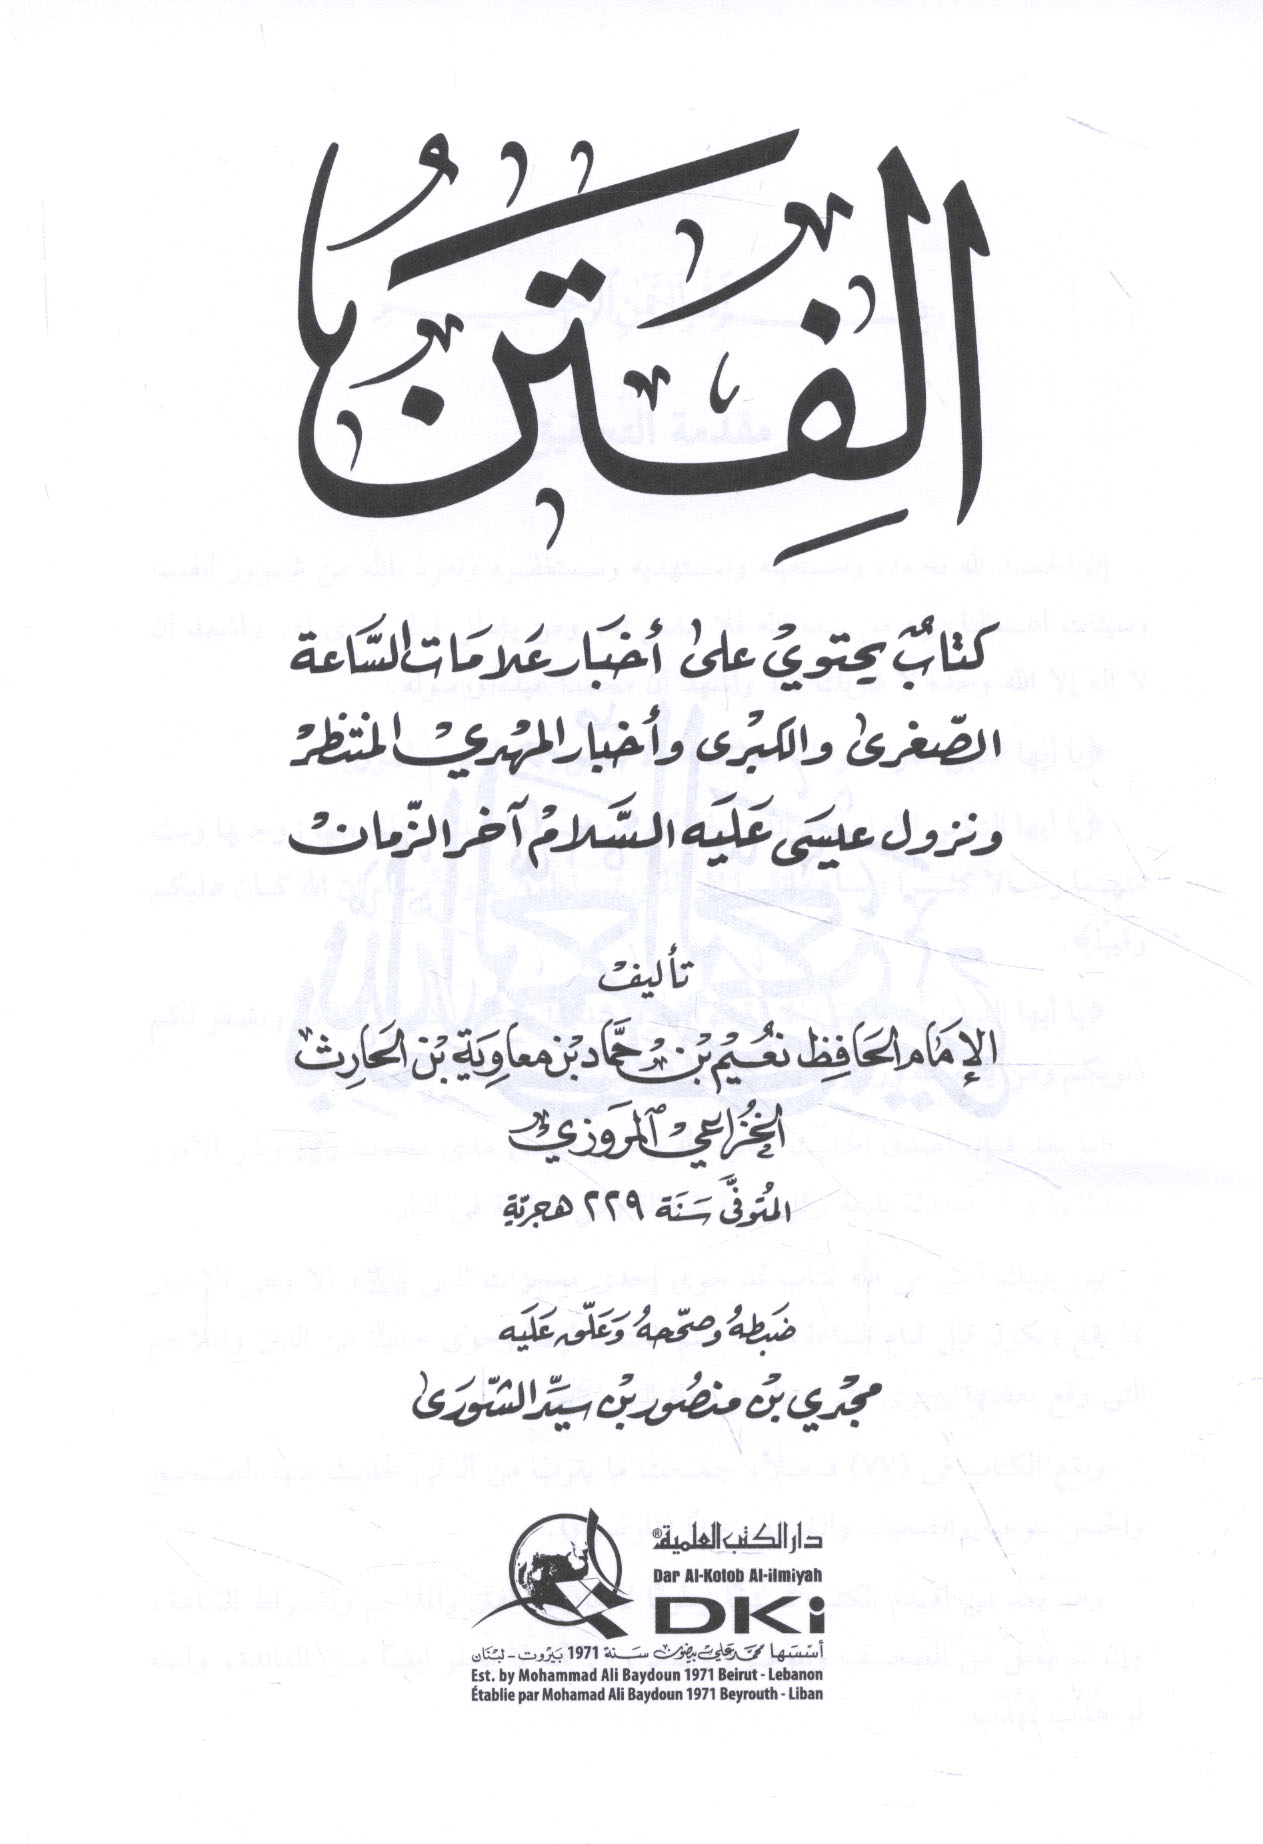 الفتن
كتاب يحتوي على أخبار علامات الساعة
الصغرى والكبرى وأخبار المهدي المنتظر
ونزول عيسى عليه السلام آخر الزمان
تأليف
الإمام الحافظ نعيم بن حماد بن معاوية بن الحارث
الخزاعي المروزي
المتوفى سنة ٢٢٩ هجرية
ضبطه وصححه وعلق عليه
مجدي بن منصور بن سيد الشورى
دار الكتب العلمية®
Dar Al-Kotob Al-ilmiyah
DKi
أسسها محمد علي بيضون سنة 1971 بيروت - لبنان
Est. by Mohammad Ali Baydoun 1971 Beirut - Lebanon
Établie par Mohamad Ali Baydoun 1971 Beyrouth - Liban